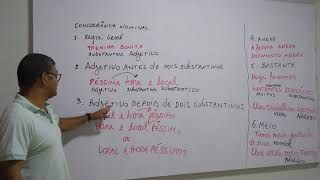 CONCORDÂNCIA NOMINAL
1. Regra Geral
MENINA BONITA
SUBSTANTIVO ADJETIVO
2. ADJETIVO ANTES DE DOIS SUBSTANTIVOS
PÉSSIMA HORA E LOCAL
ADJETIVO SUBSTANTIVO SUBSTANTIVO
3. ADJETIVO DEPOIS DE DOIS SUBSTANTIVOS
LOCAL E HORA PÉSSIMA
HORA E LOCAL PÉSSIMO
OU
LOCAL E HORA PÉSSIMOS
4. ANEXO
ANEXA
DOCUMENTO ANEXO
5. BASTANTE
Hoje
BASTANTES
MUITOS SUBSTANTIVO
Eles
VERBO
6. MEIO
meia